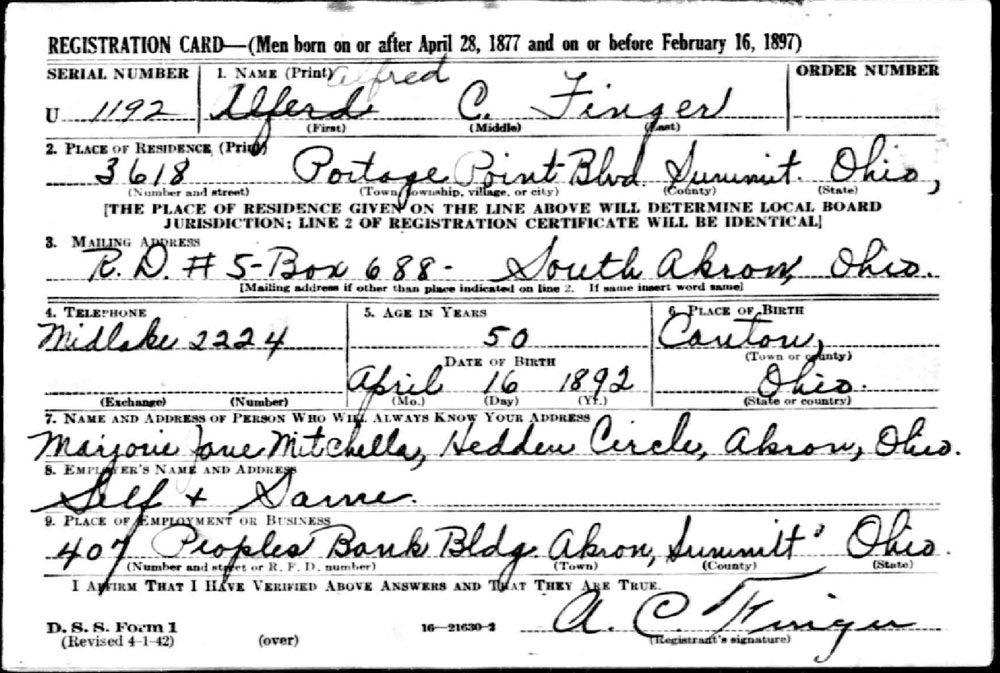 REGISTRATION CARD—(Men born on or after April 28, 1877 and on or before February 16, 1897)
SERIAL NUMBER 1. NAME (Print) Alfred ORDER NUMBER
U 1192 Alferd C. Finger
(First) (Middle) (Last)
2. PLACE OF RESIDENCE (Print)
3618 Portage Point Blvd. Summit. Ohio,
(Number and street) (Town, township, village, or city) (County) (State)
[THE PLACE OF RESIDENCE GIVEN ON THE LINE ABOVE WILL DETERMINE LOCAL BOARD
JURISDICTION; LINE 2 OF REGISTRATION CERTIFICATE WILL BE IDENTICAL]
3. MAILING ADDRESS
R. D. # 5-Box 688- South Akron, Ohio.
[Mailing address if other than place indicated on line 2. If same insert word same]
4. TELEPHONE 5. AGE IN YEARS 6. PLACE OF BIRTH
Midlake 2224 50 Canton,
DATE OF BIRTH (Town or county)
April 16 1892 Ohio.
(Exchange) (Number) (Mo.) (Day) (Yr.) (State or country)
7. NAME AND ADDRESS OF PERSON WHO WILL ALWAYS KNOW YOUR ADDRESS
Marjorie Jane Mitchella, Hedden Circle, Akron, Ohio.
8. EMPLOYER'S NAME AND ADDRESS
Self + Same.
9. PLACE OF EMPLOYMENT OR BUSINESS
407 Peoples Bank Bldg. Akron, Summitt Ohio.
(Number and street or R. F. D. number) (Town) (County) (State)
I AFFIRM THAT I HAVE VERIFIED ABOVE ANSWERS AND THAT THEY ARE TRUE.
D. S. S. Form 1 16—21630-2 A. C. Finger
(Revised 4-1-42) (over) (Registrant's signature)